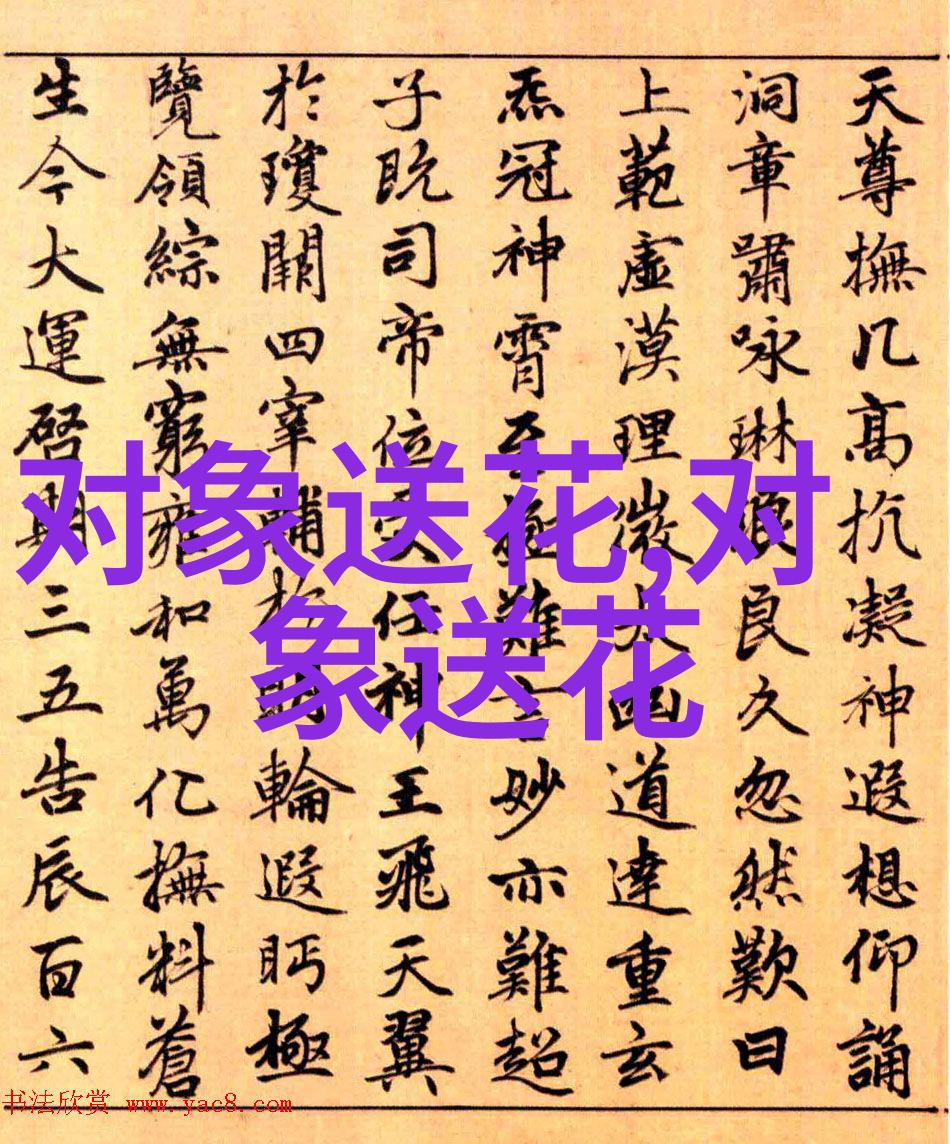 天尊撫几高抗凝神遐想仰誦
洞章嘯咏琳琅良久忽然歎曰
上範虛漠理微太幽道達重玄
炁冠神霄至極難言妙亦難超
子既司帝位受任神王飛天翼
於瓊闕四宰輔於明輪遐眄極
覽領綜無窮雍和萬化撫料蒼
生今大運啓期三五告辰百六
对象送花,对
象送花
书法欣赏 www.yac8.com